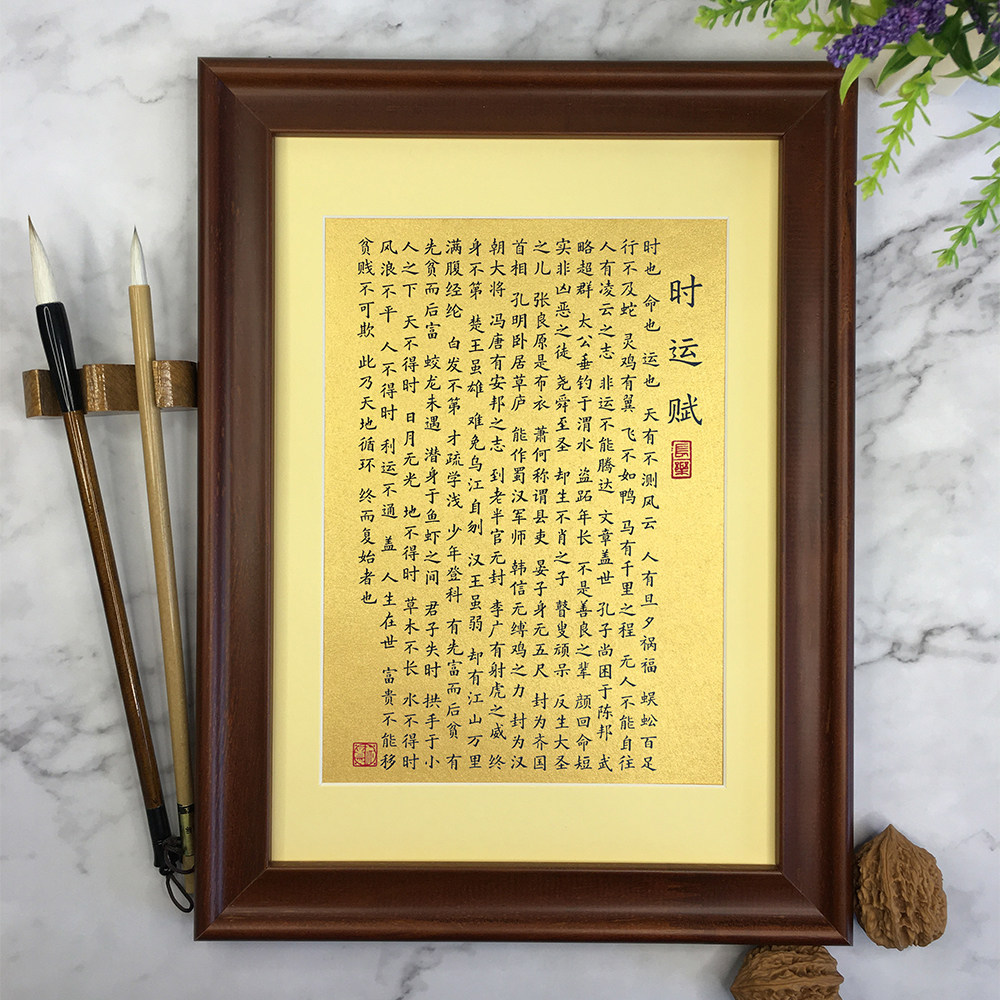 时运赋
时也 命也 运也 天有不测风云 人有旦夕祸福 蜈蚣百足
行不及蛇 灵鸡有翼 飞不如鸭 马有千里之程 无人不能自往
人有凌云之志 非运不能腾达 文章盖世 孔子尚困于陈邦 武
略超群 太公垂钓于渭水 盗跖年长 不是善良之辈 颜回命短
实非凶恶之徒 尧舜至圣 却生不肖之子 瞽叟顽呆 反生大圣
之儿 张良原是布衣 萧何称谓县吏 晏子身无五尺 封为齐国
首相 孔明卧居草庐 能作蜀汉军师 韩信无缚鸡之力 封为汉
朝大将 冯唐有安邦之志 到老半官无封 李广有射虎之威 终
身不第 楚王虽雄 难免乌江自刎 汉王虽弱 却有江山万里
满腹经纶 白发不第 才疏学浅 少年登科 有先富而后贫 有
先贫而后富 蛟龙未遇 潜身于鱼虾之间 君子失时 拱手于小
人之下 天不得时 日月无光 地不得时 草木不长 水不得时
风浪不平 人不得时 利运不通 盖 人生在世 富贵不能移
贫贱不可欺 此乃天地循环 终而复始者也